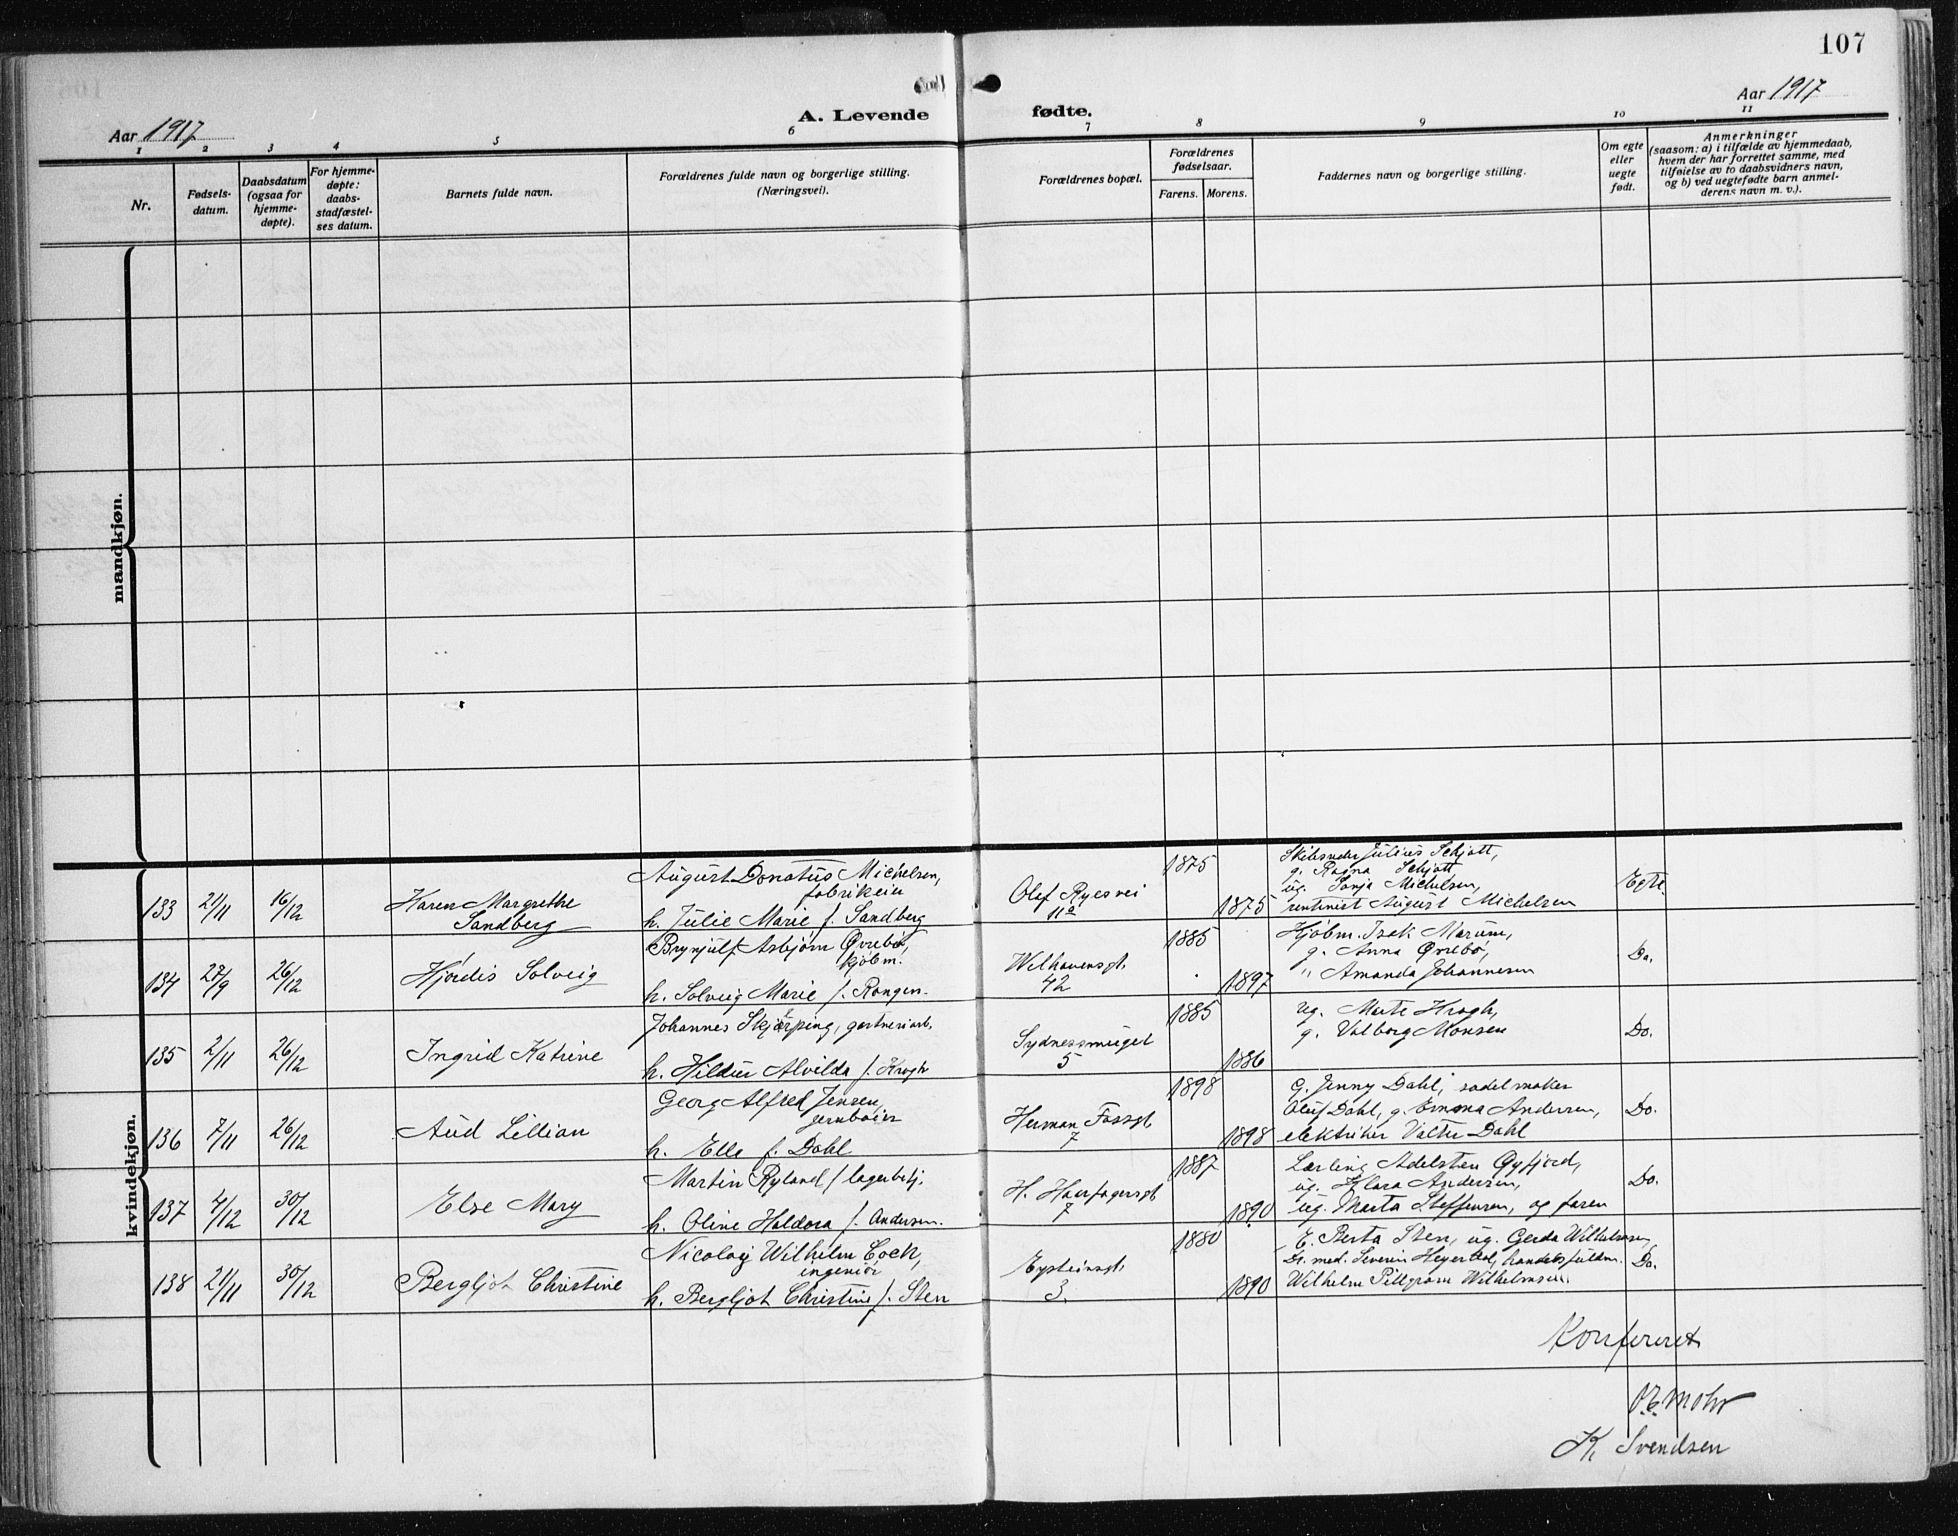 107
Aar 1917
A. Levende fødte.
Aar 1917
1 2 3 4 5 6 7 8 9 10 11
Nr.
Fødsels-
datum.
Daabsdatum
(ogsaa for
hjemme-
døpte).
For hjemme-
døpte:
daabs-
stadfæstel-
ses datum.
Barnets fulde navn.
Forældrenes fulde navn og borgerlige stilling.
(Næringsvei).
Forældrenes bopæl.
Forældrenes
fødselsaar.
Farens. Morens.
Faddernes navn og borgerlige stilling.
Om egte
eller
uegte
født.
Anmerkninger
(saasom: a) i tilfælde av hjemmedaab,
hvem der har forrettet samme, med
tilføielse av to daabsvidners navn,
og b) ved uegtefødte barn anmel-
derens navn m. v.).
mandkjøn.
kvindekjøn.
133 21/11 16/12
Karen Margrethe
Sandberg
August Donatus Michelsen,
fabrikeier
h. Julie Marie f. Sandberg
Olaf Ryesvei
11a
1875
1875
Skibsreder Julius Schjøtt,
g. Ragna Schjøtt,
ug. Sonja Michelsen,
rentinist August Michelsen
Egte
134 27/9 26/12
Hjørdis Solveig
Brynjulf Asbjørn Øvrebø,
kjøbm.
h. Solveig Marie f. Rongen.
Welhavensgt.
42
1885
1897
Kjøbm. Isak Marum,
g. Anna Øvrebø,
" Amanda Johannesen
Do.
135 2/11 26/12
Ingrid Katrine
Johannes Skjærping, gartneriarb.
h. Hildur Alvilda f. Krogh
Sydnessmuget
5
1885
1886
ug. Marte Krogh,
g. Valborg Monsen
Do.
136 7/11 26/12
Aud Lillian
Georg Alfred Jensen,
jernbaier
h. Elle f. Dahl
Herman Fossgt
7
1898
1898
g. Jenny Dahl, sadelmaker
Oluf Dahl, g. Emma Andersen,
elektriker Valter Dahl
Do.
137 4/12 30/12
Else Mary
Martin Ryland / lagerbetj.
h. Oline Haldora f. Andersen.
H. Haarfagersgt
7
1887
1890
Lærling Adelsten Gyfjord,
ug. Klara Andersen,
ug. Marta Steffensen, og faren
Do.
138 21/11 30/12
Bergljot Christine
Nicolay Wilhelm Cock,
ingeniør
h. Bergljot Christine f. Sten
Eysteinsgt.
3.
1880
1890
E. Berta Sten, ug. Gerda Wilhelmsen,
St. med. Severin Heyerdal, handelsfuldm.
Wilhelm Pillgram Wilhelmsen.
Do.
Konfereret
O. E. Mohr
K. Svendsen